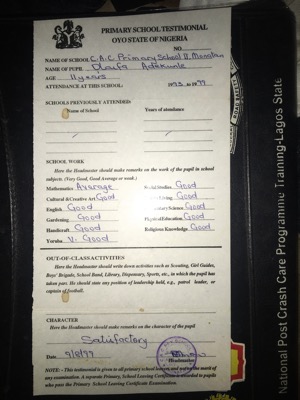 PRIMARY SCHOOL TESTIMONIAL
OYO STATE OF NIGERIA
NO
NAME OF SCHOOL C.A.C Primary School II
NAME OF PUPIL Adekunle
AGE 11 years
ATTENDANCE AT THIS SCHOOL: to 1997
SCHOOLS PREVIOUSLY ATTENDED
Name of School Years of attendance
SCHOOL WORK
Here the Headmaster should make remarks on the work of the pupil in school
subjects. (Very Good, Good Average or weak.)
Mathematics Average Social Studies Good
Cultural & Creative Art Good Good
English Good Science Good
Gardening Good Physical Education Good
Handicraft Good Religious Knowledge Good
Yoruba V. Good
OUT-OF-CLASS ACTIVITIES
Here the Headmaster should write down activities such as Scouting, Girl Guides,
Boys' Brigade, School Band, Library, Dispensary, Sports, etc., in which the pupil has
taken part. He should state any position of leadership held, e.g., patrol leader, or
captain of football.
CHARACTER
Here the Headmaster should make remarks on the character of the pupil
Satisfactory
Date 9/8/97 Headmaster
NOTE: - This testimonial is given to all primary school leavers and
any examination. A separate Primary School Leaving Certificate is awarded to pupils
who pass the Primary School Leaving Certificate Examination.
National Post Crash Care Programme Training-Lagos State